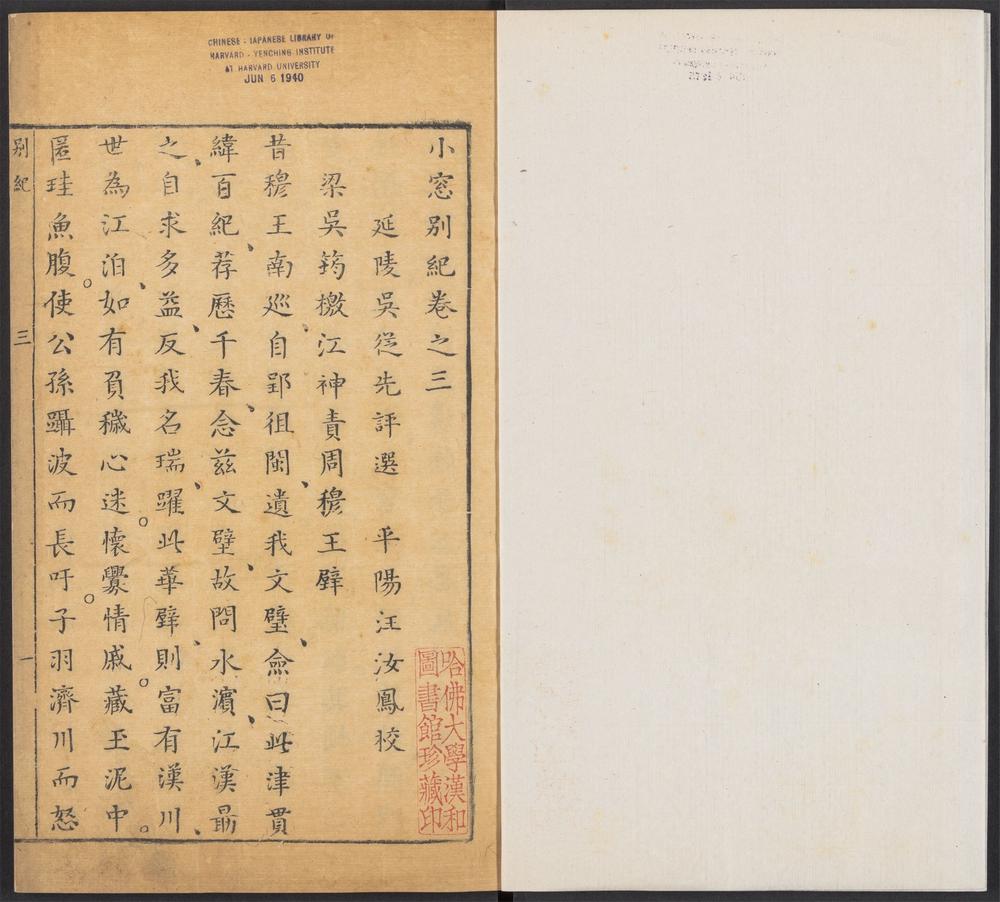 CHINESE - JAPANESE LIBRARY OF
HARVARD - YENCHING INSTITUTE
AT HARVARD UNIVERSITY
JUN 6 1940
小窓别紀卷之三
延陵吳從先評選 平陽汪汝鳳挍
梁吳筠檄江神責周穆王璧
昔穆王南巡自郢徂閩遺我文璧僉曰此津貫
緯百紀荐歷千春念兹文璧故問水濱江漢最
之自求多益反我名瑞躍此華璧則富有漢川
世為江泊如有負穢心迷懷釁情戚藏玉泥中
匿珪魚腹使公孫躡波而長吁子羽濟川而怒
别紀
三
一
哈佛大學漢和
圖書館珍藏印